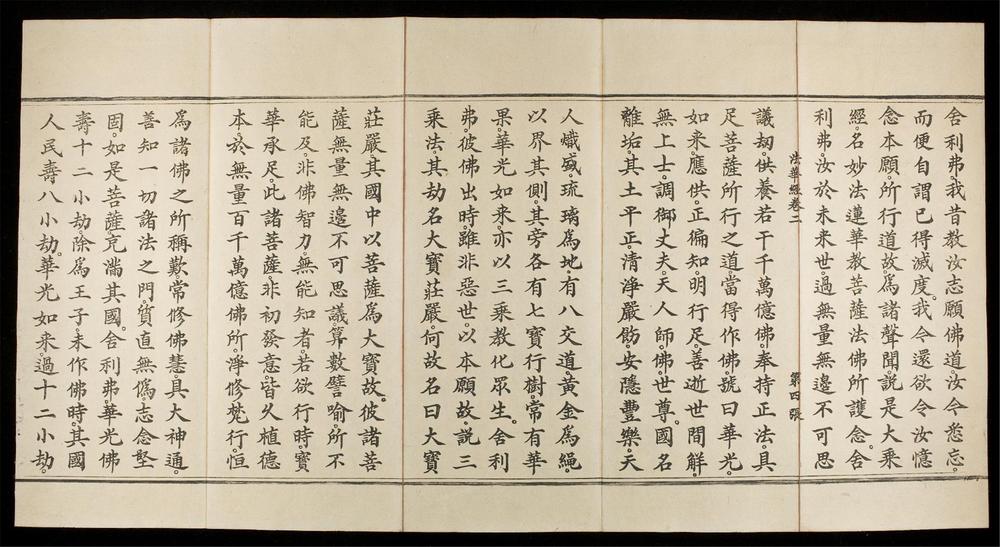 舍利弗。我昔教汝志願佛道。汝今悉忘。
而便自謂已得滅度。我今還欲令汝憶
念本願所行道故。爲諸聲聞說是大乘
經。名妙法蓮華教菩薩法佛所護念。舍
利弗。汝於未來世過無量無邊不可思
法華經卷二 第四張
議劫。供養若干千萬億佛。奉持正法。具
足菩薩所行之道。當得作佛。號曰華光
如來。應供。正徧知。明行足。善逝。世間解。
無上士。調御丈夫。天人師。佛。世尊。國名
離垢。其土平正。清淨嚴飾。安隱豐樂。天
人熾盛。琉璃爲地。有八交道。黃金爲繩。
以界其側。其旁各有七寶行樹。常有華
果。華光如來。亦以三乘教化眾生。舍利
弗。彼佛出時。雖非惡世。以本願故。說三
乘法。其劫名大寶莊嚴。何故名曰大寶
莊嚴。其國中以菩薩爲大寶故。彼諸菩
薩。無量無邊不可思議。筭數譬喻所不
能及。非佛智力。無能知者。若欲行時。寶
華承足。此諸菩薩。非初發意。皆久植德
本。於無量百千萬億佛所。淨修梵行。恒
爲諸佛之所稱歎。常修佛慧。具大神通。
善知一切諸法之門。質直無僞。志念堅
固。如是菩薩。充滿其國。舍利弗。華光佛
壽十二小劫。除爲王子未作佛時。其國
人民壽八小劫。華光如來。過十二小劫。